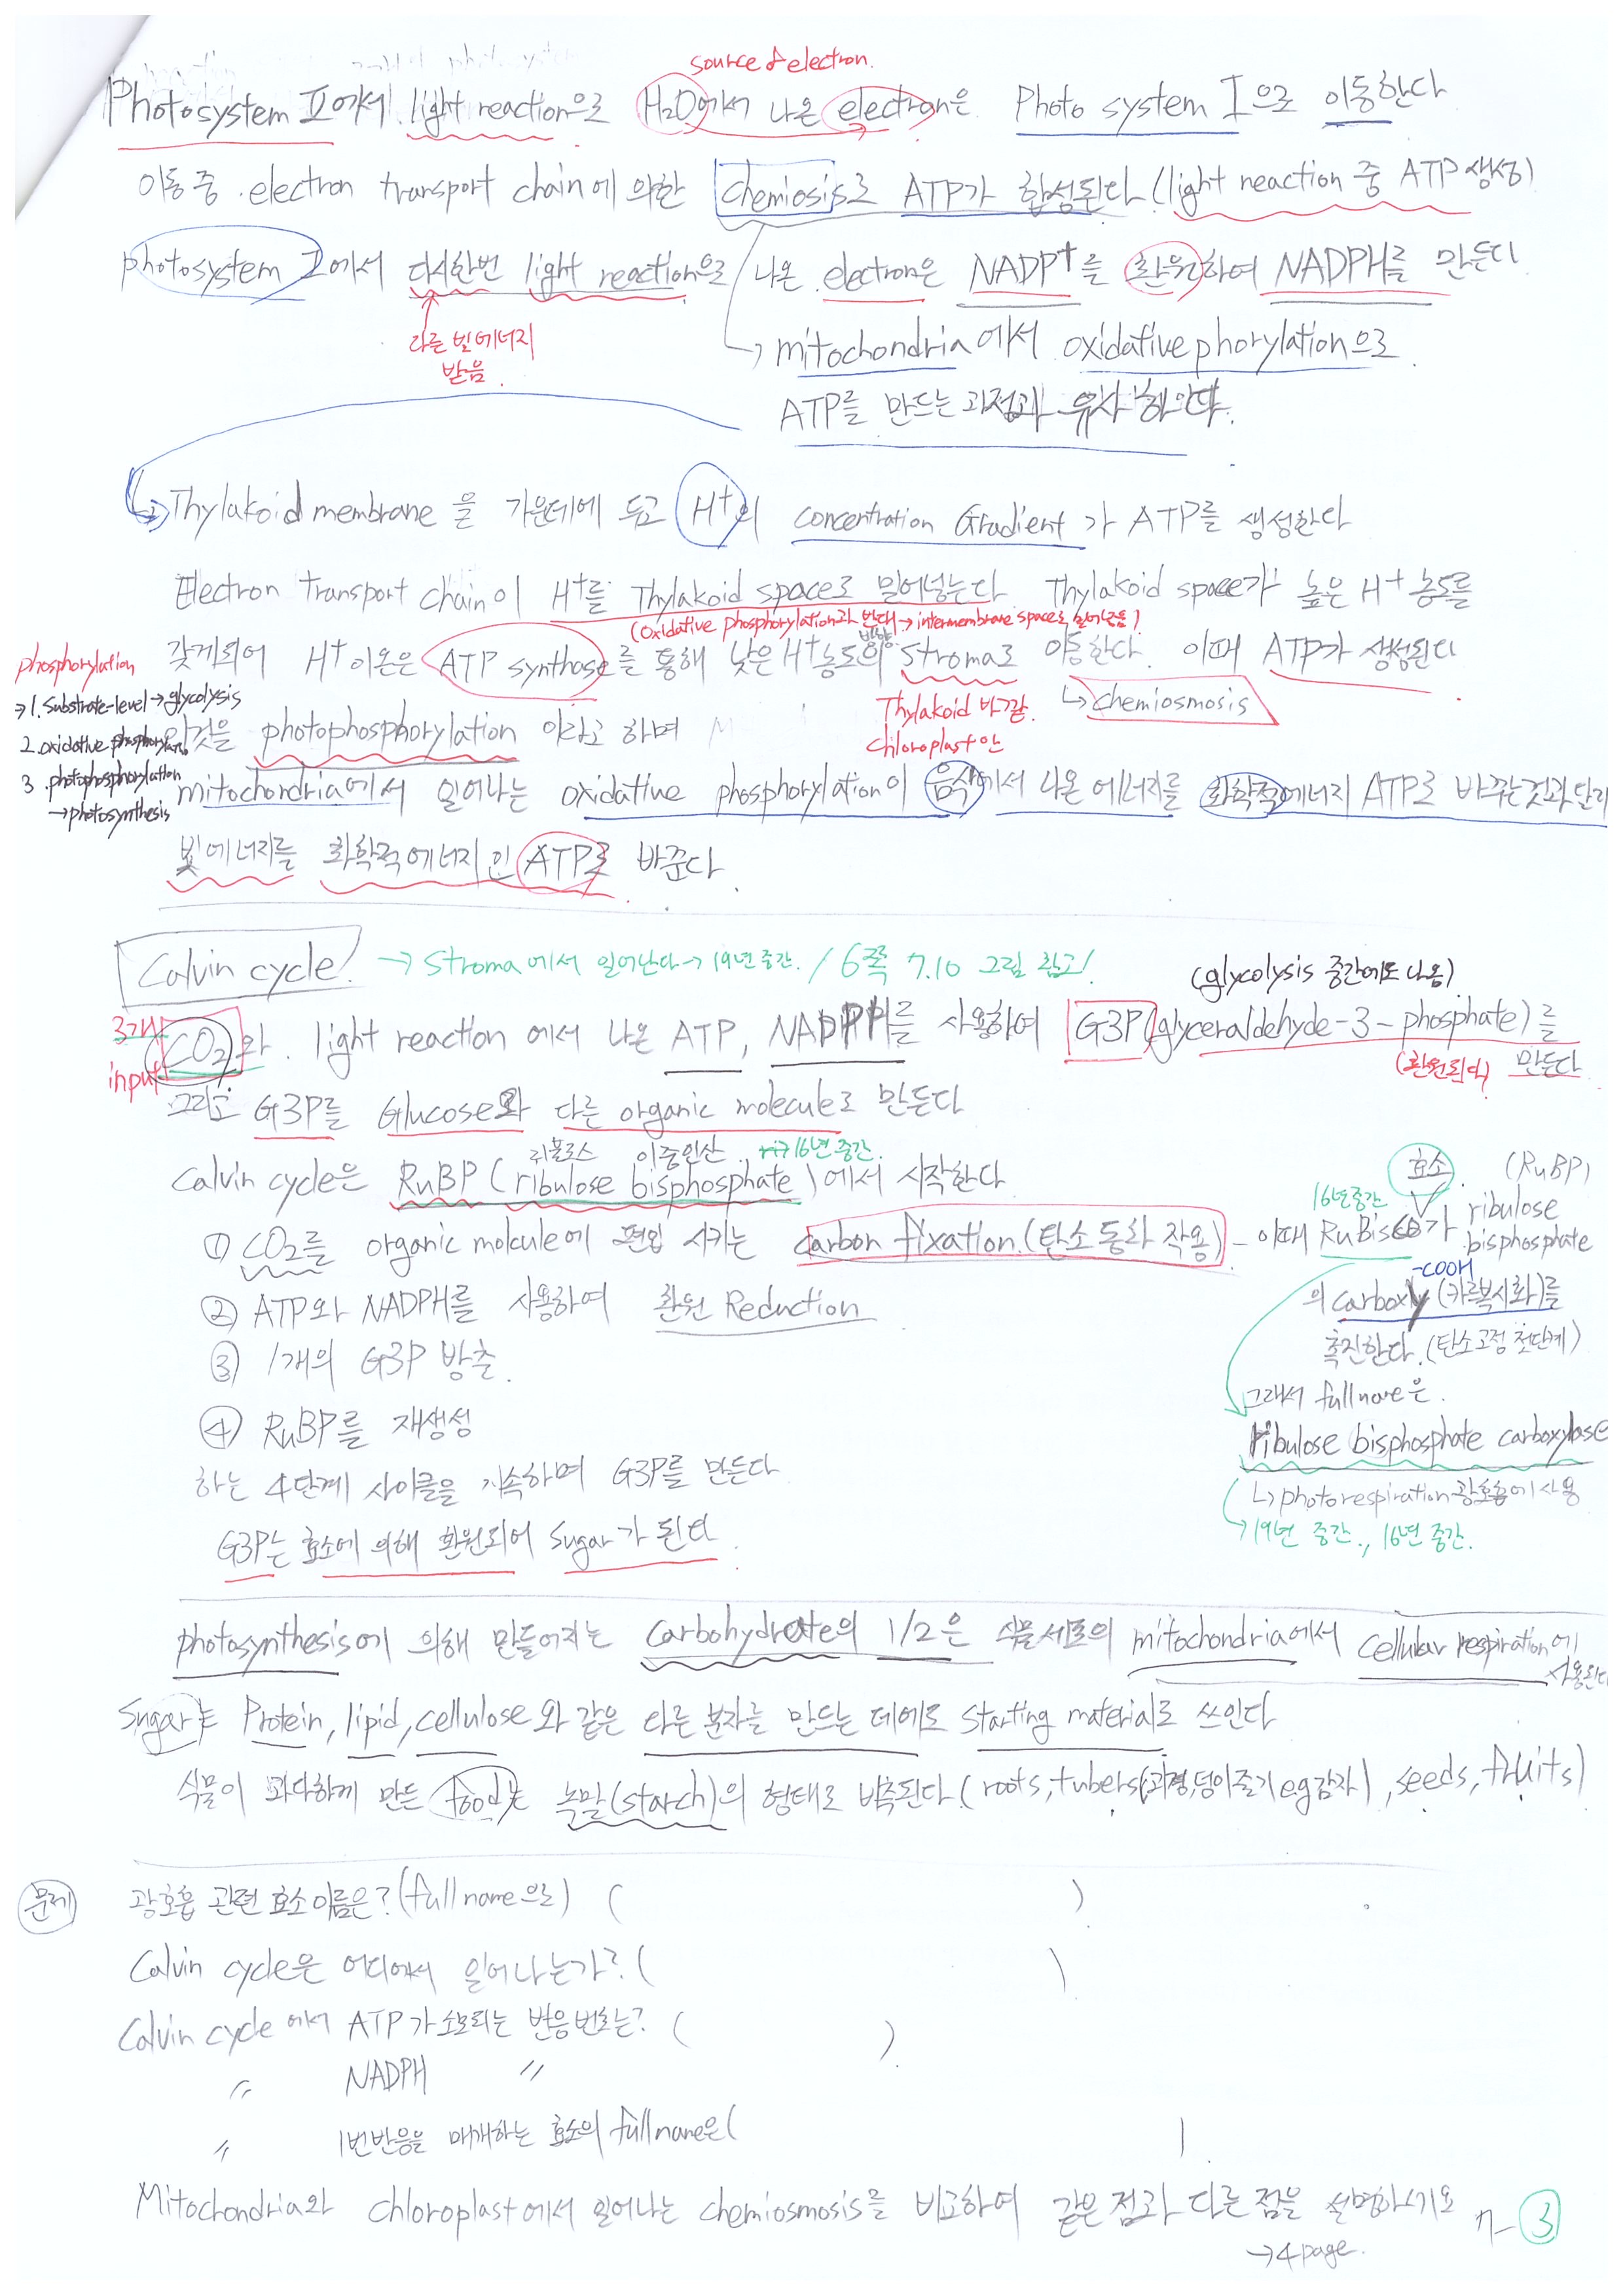 source of electron.
Photosystem II에서 light reaction으로 H2O에서 나온 electron은 Photo system I으로 이동한다
이동 중 electron transport chain에 의한 chemiosis로 ATP가 합성된다 (light reaction 중 ATP 생성)
photosystem I에서 다시한번 light reaction으로 나온 electron은 NADP+를 환원하여 NADPH를 만든다
다른 빛에너지
받음.
→ mitochondria에서 oxidative phorylation으로
ATP를 만드는 과정과 유사하다.
→ Thylakoid membrane을 가운데에 두고 H+의 concentration Gradient가 ATP를 생성한다
Electron Transport chain이 H+를 Thylakoid space로 밀어넣는다 Thylakoid space가 높은 H+ 농도를
(oxidative phosphorylation과 반대 방향 → intermembrane space로 밀어넣음)
갖게되어 H+ 이온은 ATP synthase를 통해 낮은 H+농도의 stroma로 이동한다. 이때 ATP가 생성된다
Thylakoid 바깥
chloroplast 안
↳ chemiosmosis
phosphorylation
→ 1. Substrate-level → glycolysis
2. oxidative phosphorylation
3. photophosphorylation
→ photosynthesis
이것을 photophosphorylation 이라고 하며
mitochondria에서 일어나는 oxidative phosphorylation이 음식에서 나온 에너지를 화학적에너지 ATP로 바꾸는것과 달리
빛에너지를 화학적에너지인 ATP로 바꾼다.
Calvin cycle! → stroma에서 일어난다 → 19년 중간. / 6쪽 7.10 그림 참고!
(glycolysis 중간에도 나옴)
3개
input
CO2와 light reaction 에서 나온 ATP, NADPH를 사용하여 G3P(glyceraldehyde-3-phosphate)를
(환원되다) 만든다
그리고 G3P를 Glucose와 다른 organic molecule로 만든다
리불로스 이중인산 → 16년 중간.
Calvin cycle은 RuBP (ribulose bisphosphate)에서 시작한다
① CO2를 organic molcule에 편입 시키는 carbon fixation.(탄소 동화 작용) - 이때 RuBisco가 ribulose
16년 중간
효소
(RuBP)
bisphosphate
-COOH
의 carboxly (카르복시화)를
촉진한다. (탄소고정 첫단계)
그래서 full name은.
ribulose bisphosphate carboxylase
↳ photorespiration 광호흡에 사용
→ 19년 중간., 16년 중간.
② ATP와 NADPH를 사용하여 환원 Reduction
③ 1개의 G3P 방출.
④ RuBP를 재생성
하는 4단계 사이클을 지속하며 G3P를 만든다
G3P는 효소에 의해 환원되어 sugar가 된다.
photosynthesis에 의해 만들어지는 carbohydrate의 1/2은 식물세포의 mitochondria에서 cellular respiration에
사용된다
Sugar는 Protein, lipid, cellulose와 같은 다른 분자를 만드는 데에도 starting material로 쓰인다
식물이 과다하게 만든 food는 녹말(starch)의 형태로 비축된다 (roots, tubers(괴경, 덩이줄기 e.g 감자), seeds, fruits)
문제
광호흡 관련 효소 이름은? (full name 으로) ( )
Calvin cycle은 어디에서 일어나는가? ( )
Calvin cycle 에서 ATP가 소모되는 반응 번호는? ( )
〃 NADPH 〃
〃 1번반응을 매개하는 효소의 full name은( )
Mitochondria와 chloroplast에서 일어나는 chemiosmosis를 비교하여 같은 점과 다른 점을 설명하시기오
→ 4 page.
7-③